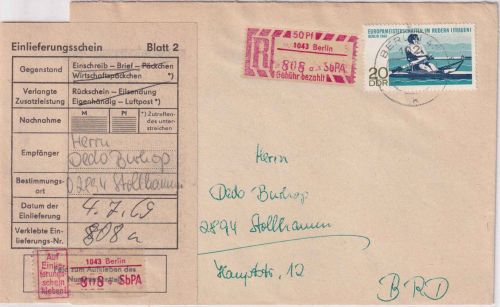 Einlieferungsschein Blatt 2
Gegenstand
Einschreib – Brief – Päckchen
Wirtschaftspäckchen *)
Verlangte Zusatzleistung
Rückschein – Eilsendung
Eigenhändig – Luftpost *)
Nachnahme
M
Pf
*) Zutreffendes unterstreichen
Empfänger
Herrn
Dedo Burhop
Bestimmungsort
D 2894 Stollhamm
Datum der Einlieferung
4.7.69
Verklebte Einlieferungs-Nr.
808 a
Auf Einlieferungsschein kleben!
1043 Berlin
808 a SbPA
Feld zum Aufkleben des
R
50 Pf
1043 Berlin
808 a SbPA
Gebühr bezahlt
EUROPAMEISTERSCHAFTEN IM RUDERN (FRAUEN)
BERLIN
20
DDR
BERLIN
Herrn
Dedo Burhop
2894 Stollhamm
Hauptstr. 12
BRD